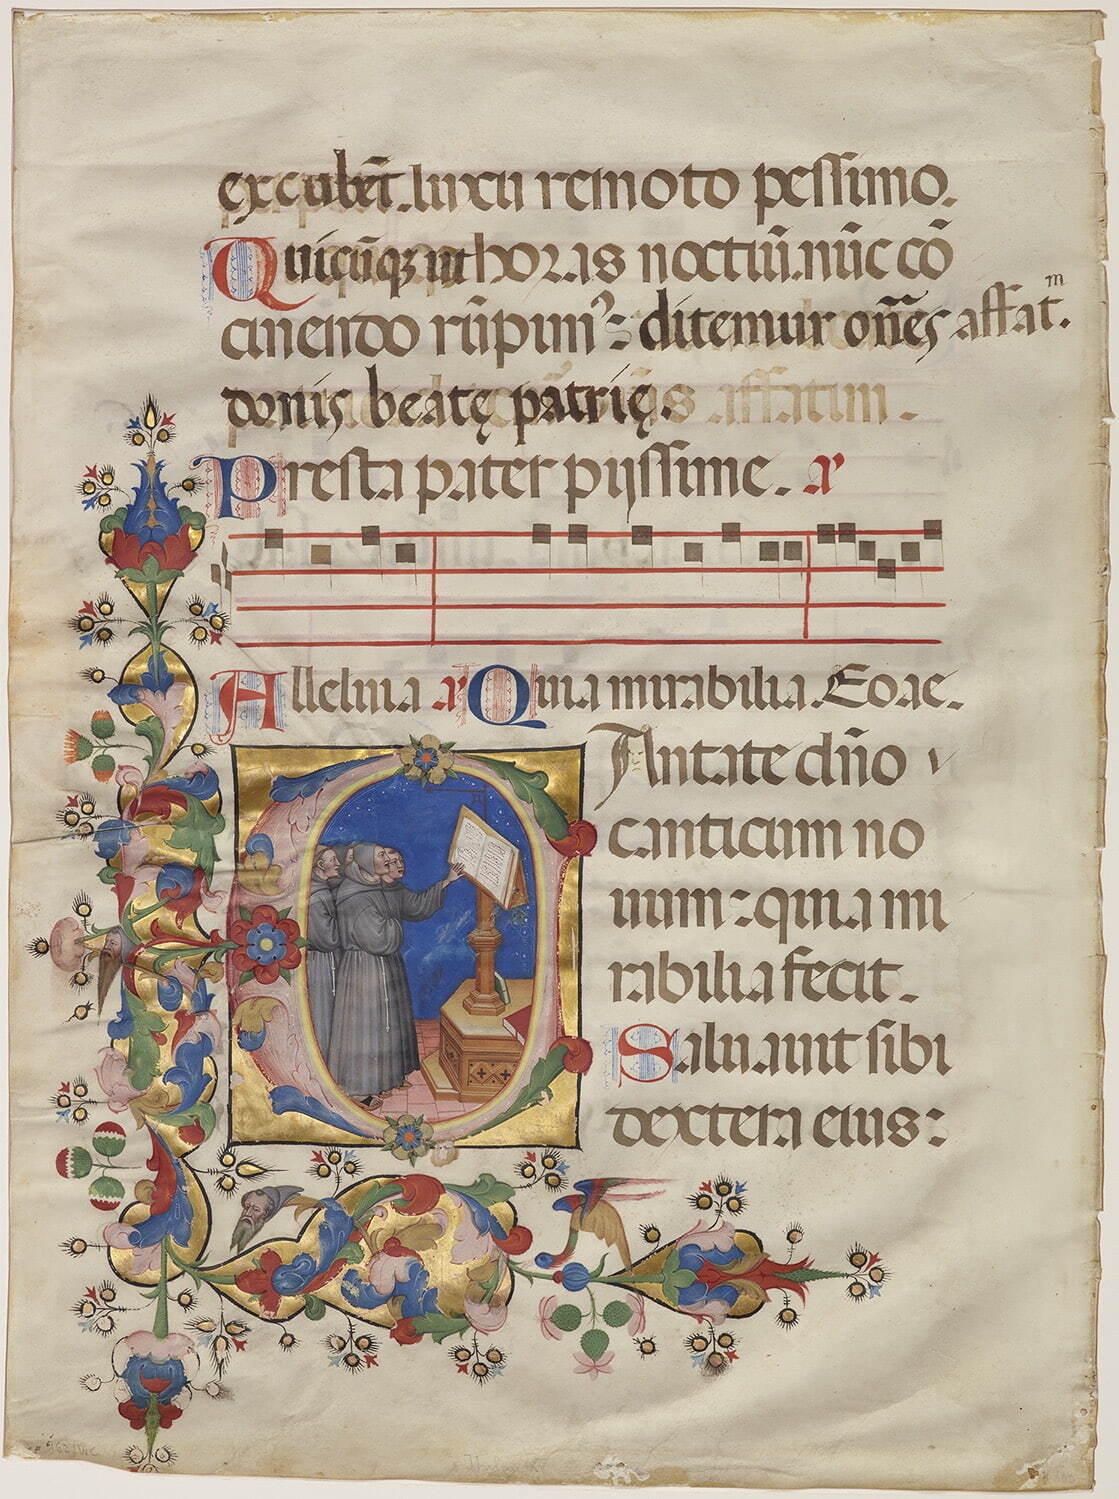 excubēt. luxu remoto pessimo.
Quicūqꝫ ut horas noctiū. nūc cō
cinendo rūpimꝰ: ditemur oñes affatͫ.
donis beatę pātrię. affatim.
Presta pater pijssime. a
Alleluia a Quia mirabilia. Eoae.
Antate dño
canticum no
uum: quia mi
rabilia fecit.
Saluauit sibi
dextera eius: